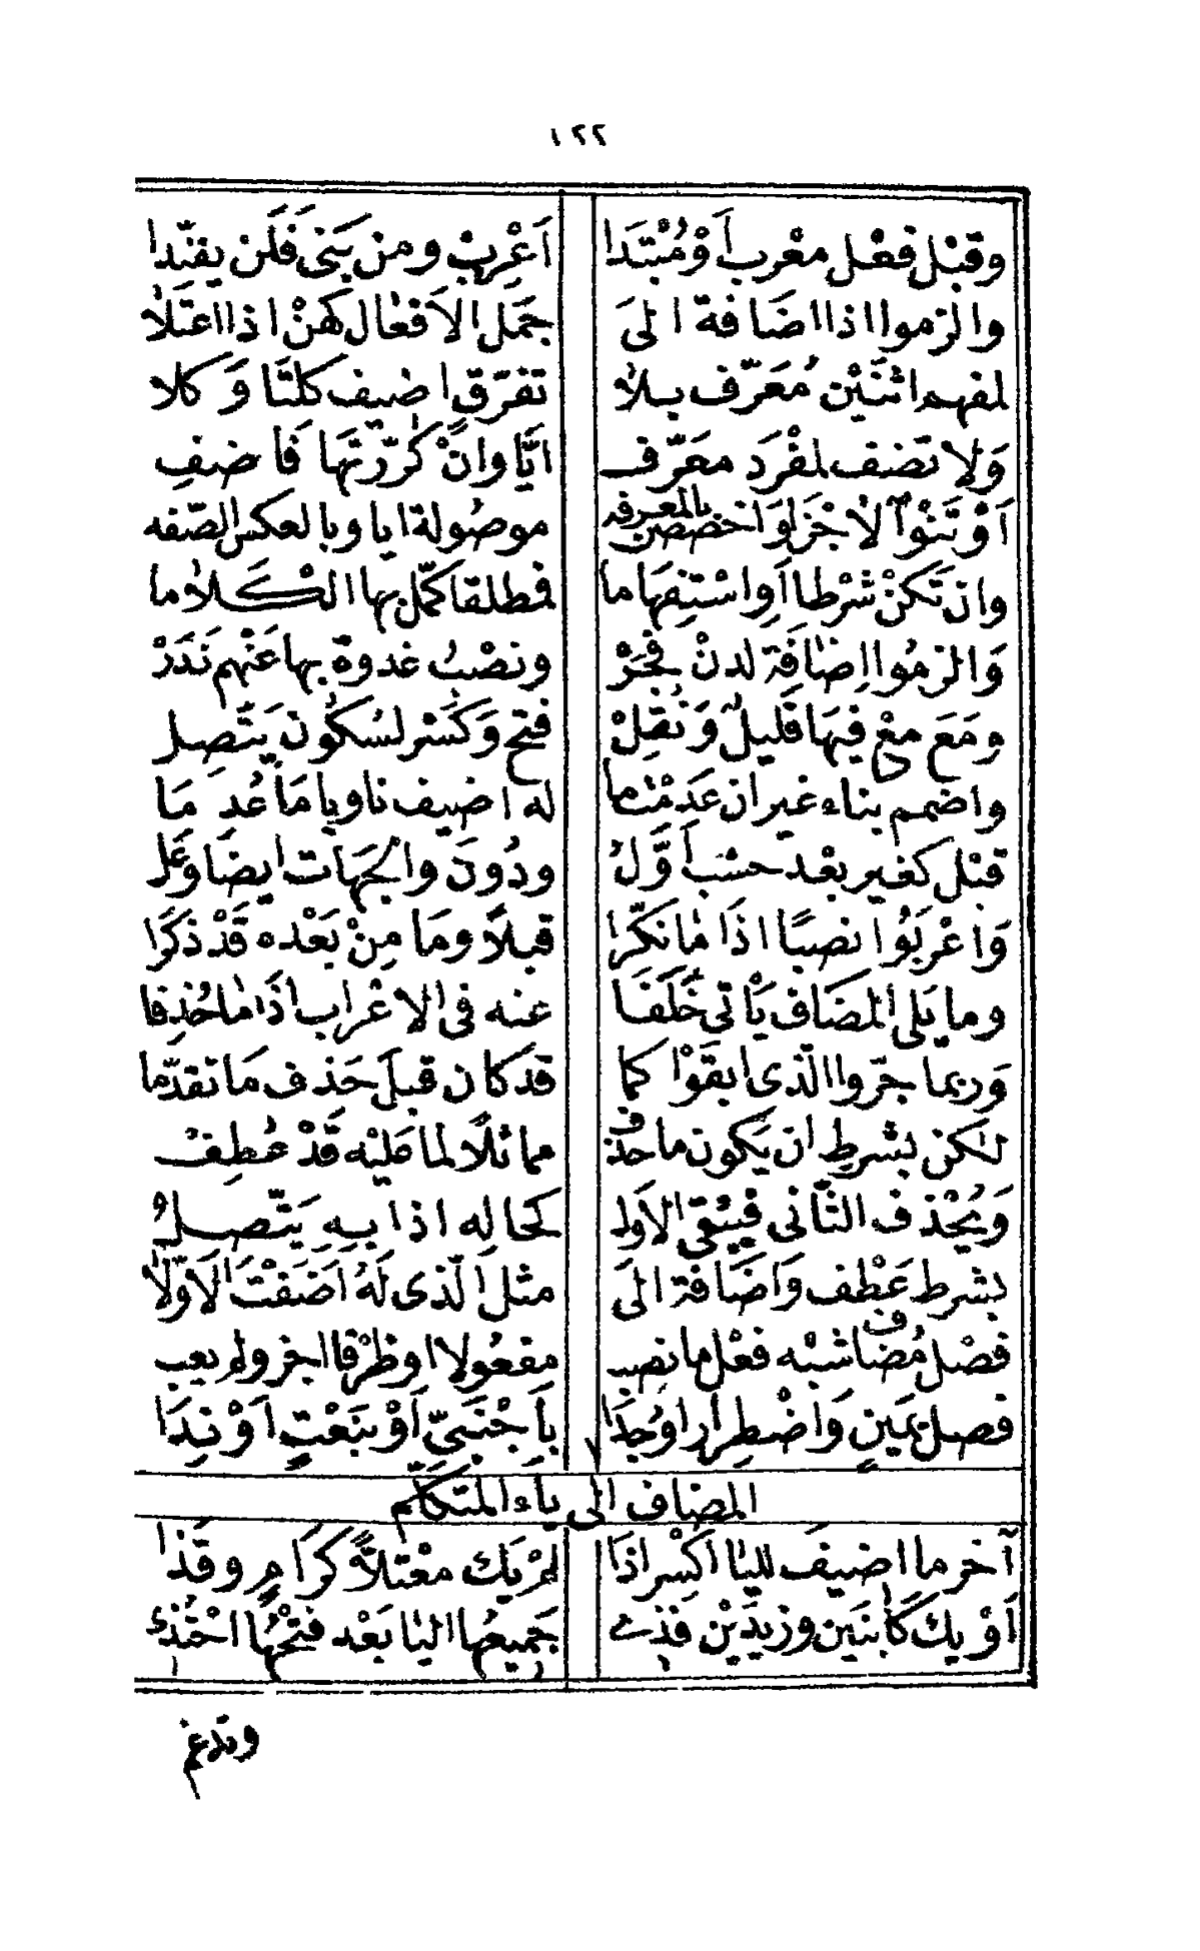 ١٢٢
وقَبْل فعْل معْرب أَوْ مُبْتَدَا أَعْرِبْ ومن بَنَى فَلَن يفنّدا
والزموا اذا اضَافة الىَ جُمَل الاَفعَال كهنْ اذا اعتَلَا
لمفهم اثنَيْن مُعَرّف بلا تفرّقٍ اضيف كلتَا وَكلا
وَلا تضف لمفْرَد معَرّف ايّا وانْ كرّرتَهَا فَاضفِ
أوْ تَنْوِ الاجْزَا وَاخصصن بالمعرفه موصُولة ايا وبالعكس الصّفه
وان تَكنْ شرْطا أَوِ اسْتِفهَاما فمطلقا كمّل بها الْكَلاما
وَالزمُوا اِضَافَة لدنْ فجَرْ ونصْبُ غدوة بها عَنْهم نَدَرْ
ومَعَ معْ فيهَا قَليلٌ وَنُقِلْ فتح وَكَسْر لسكُون يَتّصِل
واضمم بناء غير ان عَدمْت ما له اضيف ناويا مَا عُدِمَا
قبْل كغير بعْد حسْب أَوّلُ ودُونَ والجهَات ايضا وَعَل
وَاعْرَبُوا نصبًا اذَا مَا نكّرا قبلاً ومَا مِنْ بَعْده قَدْ ذكَرَا
وما يَلى المضَاف يَأتي خَلَفَا عنه فى الاعْرَاب اذَا مَا حُذِفا
وَربما جرّوا الّذى ابقَوْا كما قد كان قبلَ حَذف مَا تقدّما
لٰكن بشرطِ ان يَكون ما حذف مماثلًا لما عَليْه قَدْ عُطِفْ
وَيُحْذف الثّانى فيَبْقى الاَول كحَالِه اذا بهِ يَتّصلُ
بشرط عَطْف وَاضَافة الىَ مثل الّذى لَهُ اَضَفْتَ الاَوّلَا
فصْل مُضاف شبْه فعْل ما نصب مفعُولا او ظرْفا اجز ولم يعب
فصل يَمينٍ وَاضْطِرارا وُجدَا بأَجْنَبىّ أَوْ بنَعْتٍ أَوْ نِدَا
المضاف الى ياء المتكلم
آخر ما اضيفَ لليَا اكْسر اذَا لمْ يَك معْتلاًّ كرَامٍ وقَذَا
أَوْ يك كَابنَين وزيدَيْن فذى جَميعُها اليَا بَعْد فتحُهَا احْتُذى
وتدغم